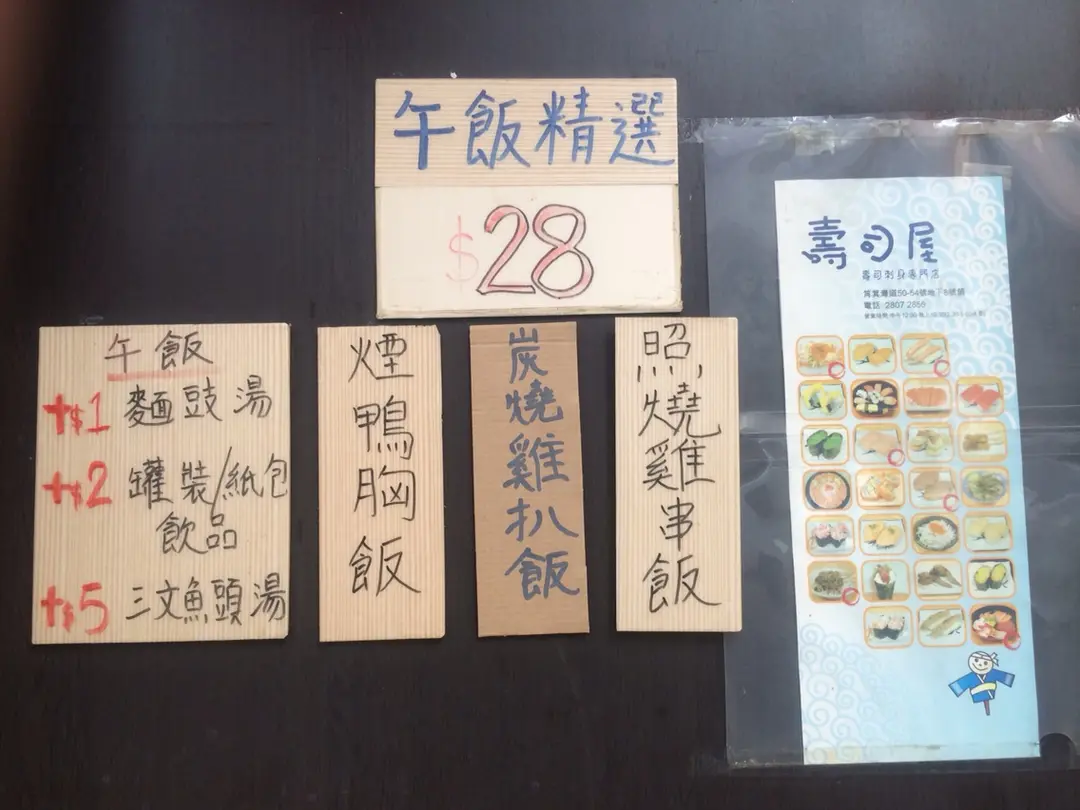 午飯精選
$28
午飯
+$1 麵豉湯
+$2 罐裝/紙包
飲品
+$5 三文魚頭湯
煙鴨胸飯
炭燒雞扒飯
照燒雞串飯
壽司屋
壽司刺身專門店
筲箕灣道50-54號地下6號舖
電話 2807 2856